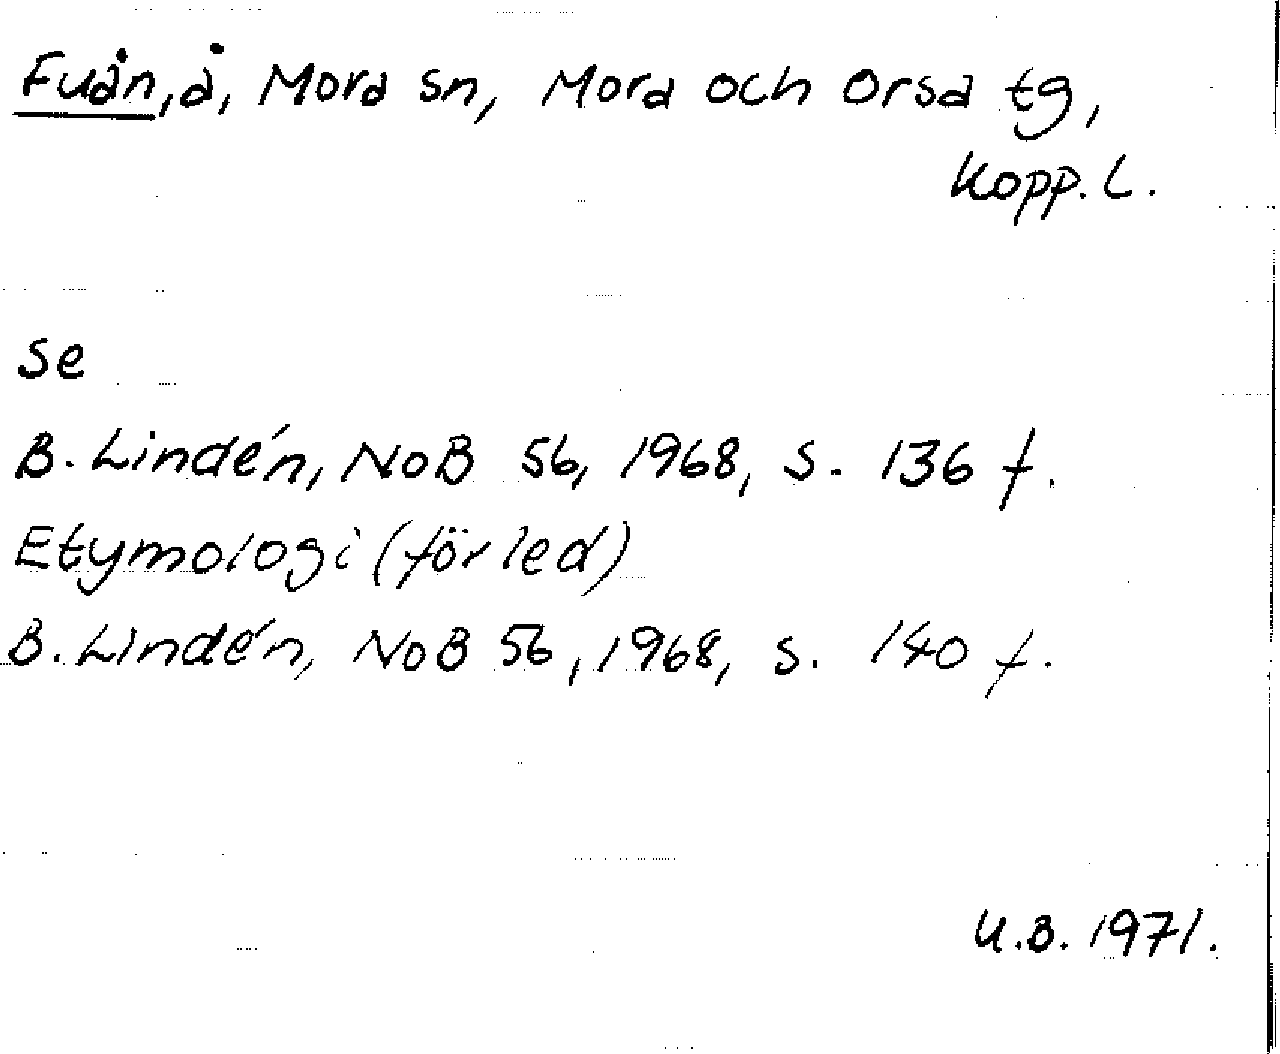 Fuån, å, Mora sn, Mora och Orsa tg,
Kopp. L.
se
B. Lindén, NoB 56, 1968, s. 136 f.
Etymologi (förled)
B. Lindén, NoB 56, 1968, s. 140 f.
U.B. 1971.